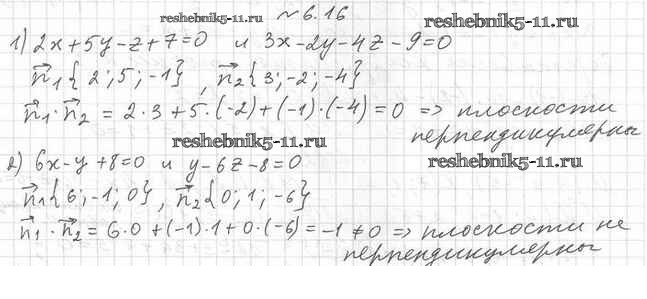 №6.16
reshebnik5-11.ru reshebnik5-11.ru
1) 2x+5y-z+7=0 и 3x-2y-4z-9=0
n⃗₁{2;5;-1}, n⃗₂{3;-2;-4}
n⃗₁·n⃗₂ = 2·3+5·(-2)+(-1)·(-4)=0 => плоскости
перпендикулярны
reshebnik5-11.ru
2) 6x-y+8=0 и y-6z-8=0
reshebnik5-11.ru
n⃗₁{6;-1;0}, n⃗₂{0;1;-6}
n⃗₁·n⃗₂=6·0+(-1)·1+0·(-6)=-1≠0 => плоскости не
перпендикулярны